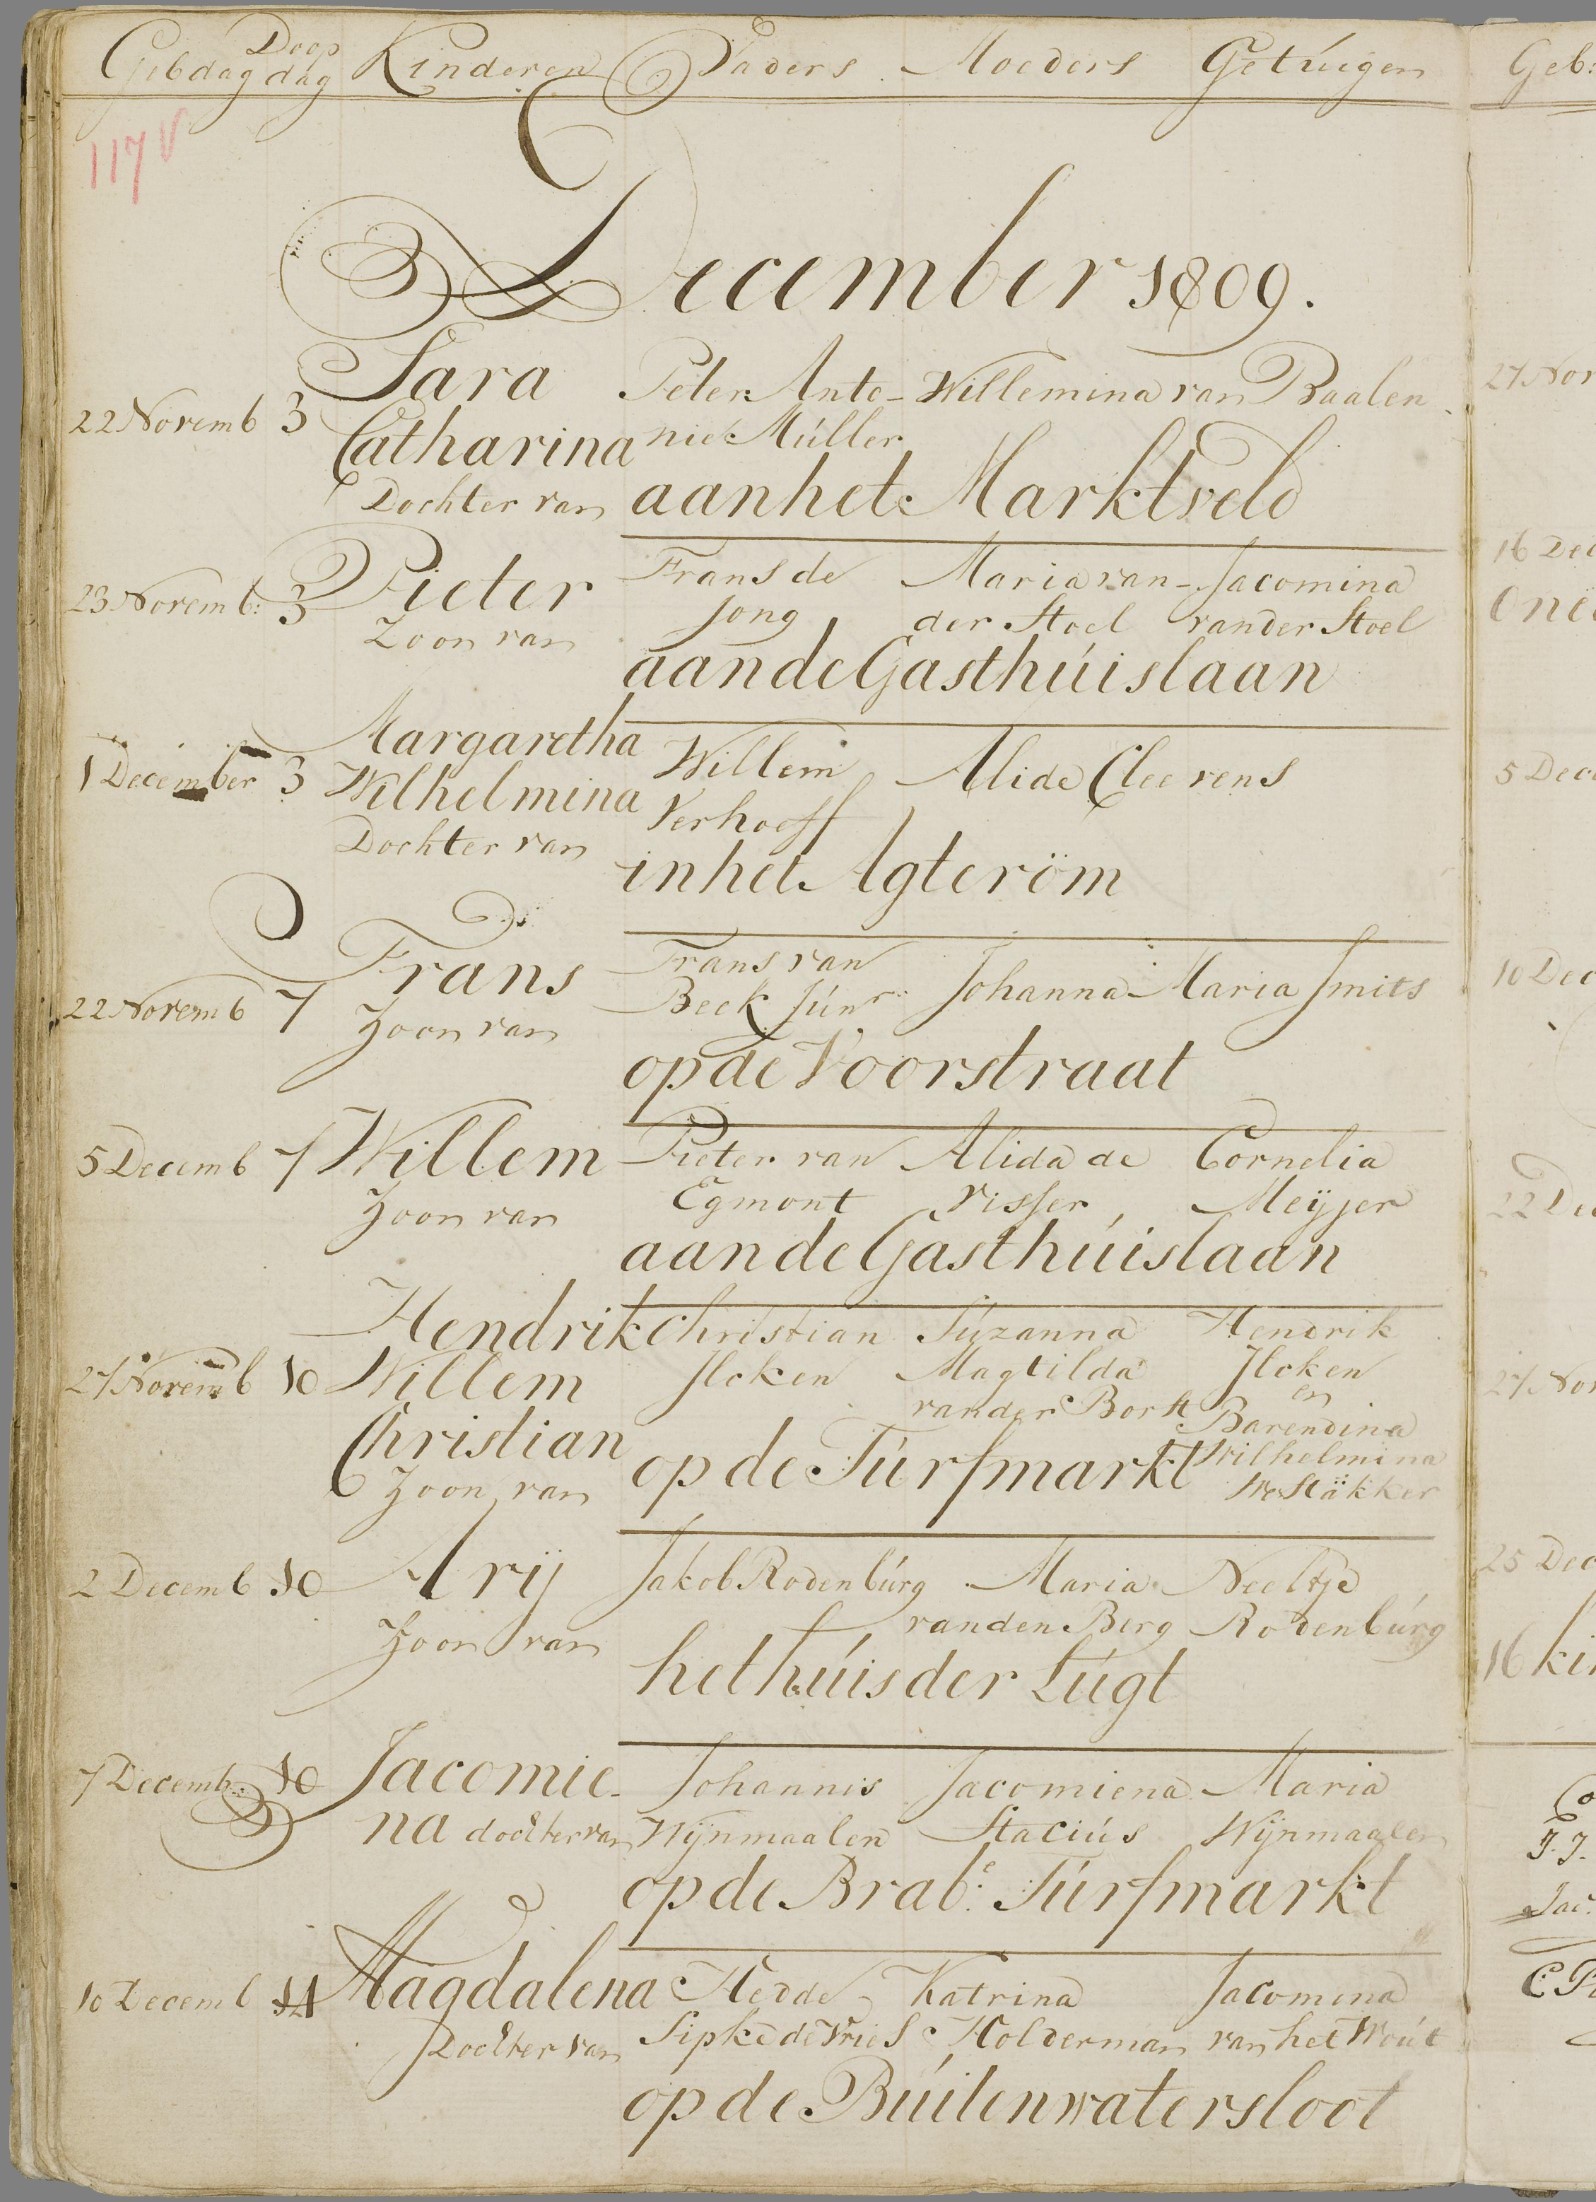 Gebdag Doop dag Kinderen Vaders Moeders Getúigen
117 v
December 1809.
22 Novemb 3 Sara Peter Anto- Willemina van Baalen
Catharina nie Múller
Dochter van aan het Marktveld
23 Novemb: 3 Pieter Frans de Maria van Jacomina
Zoon van Jong der Stoel van der Stoel
aan de Gasthúislaan
Margaretha
1 December 3 Wilhelmina Willem Alida Cleevens
Dochter van Verhoeff
in het Agteröm
22 Novemb 7 Frans Frans van Johanna Maria Smits
Zoon van Beek Júnr:
op de Voorstraat
5 Decemb 7 Willem Pieter van Alida de Cornelia
Zoon van Egmont Visser Meÿjer
aan de Gasthúislaan
Hendrik Christian Súzanna Hendrik
27 Novemb 10 Willem Ilcken Magtilda Ilcken
van der Borst en
Christian Barendina
Zoon van op de Túrfmarkt Wilhelmina
Stäkker
2 Decemb 10 Arÿ Jakob Rodenbúrg Maria Neeltje
Zoon van van den Berg Rodenbúrg
het húis der Lúgt
7 Decemb: 10 Jacomie- Johannis Jacomiena Maria
na dochter van Wÿnmaalen Staciús Wÿnmaalen
op de Brab.e Túrfmarkt
10 Decemb 14 Magdalena Hedde Katrina Jacomina
Dochter van Sipke de Vries Holderman van het Woút
op de Búitenwatersloot
Geb:
27 Nov
16 Dec
Onec
5 Dece
10 Dec
22 Dec
27 Nov
25 Dec
16 kin
Co
J. J.
Jac.